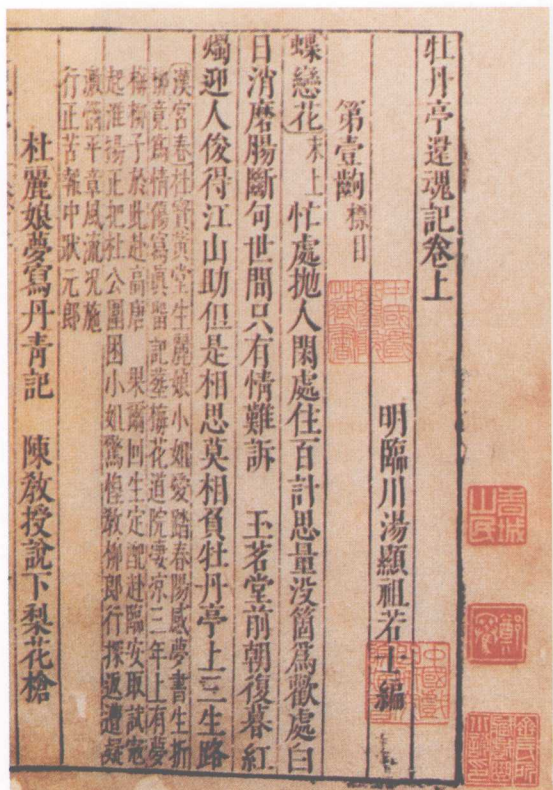 牡丹亭還魂記卷上
明臨川湯顯祖若士編
第壹齣 標目
蝶戀花 末上 忙處拋人閑處住百計思量没箇爲歡處白
日消磨腸斷句世間只有情難訴 玉茗堂前朝復暮紅
燭迎人俊得江山助但是相思莫相負牡丹亭上三生路
漢宮春杜寶黃堂生麗娘小姐愛踏春陽感夢書生折
柳竟爲情傷寫真留記葬梅花道院淒涼三年上有夢
梅柳子於此赴高唐 果爾回生定配赴臨安取試寇
起淮揚正把杜公圍困小姐驚惶教柳郎行探返遭疑
激惱平章風流況施
行正苦報中狀元郎
杜麗娘夢寫丹青記 陳教授說下梨花槍